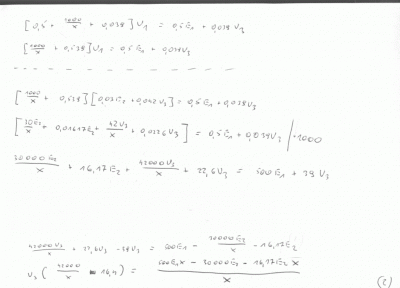 [0,5 + 1000/x + 0,039] U1 = 0,5E1 + 0,039U3
[1000/x + 0,539] U1 = 0,5E1 + 0,039U3
[1000/x + 0,539][0,03E2 + 0,042U3] = 0,5E1 + 0,039U3
[30E2/x + 0,01617E2 + 42U3/x + 0,0226U3] = 0,5E1 + 0,039U3 /·1000
30000E2/x + 16,17E2 + 42000U3/x + 22,6U3 = 500E1 + 39U3
42000U3/x + 22,6U3 - 39U3 = 500E1 - 30000E2/x - 16,17E2
U3 (42000/x - 16,4) = 500E1x - 30000E2 - 16,17E2x / x
(2)